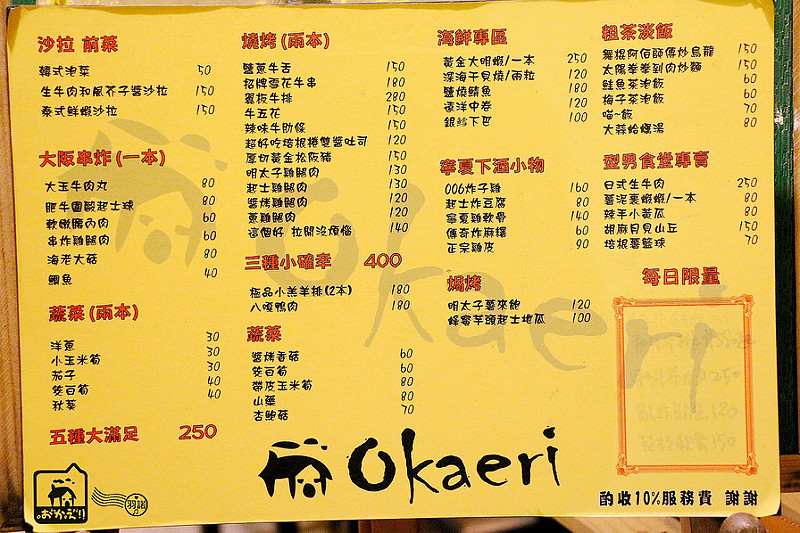 沙拉 前菜
韓式泡菜 50
生牛肉和風芥子醬沙拉 150
泰式鮮蝦沙拉 150
大阪串炸(一本)
大玉牛肉丸 80
肥牛圍毆起士球 80
軟嫩腰內肉 60
串炸雞腿肉 60
海老大菇 80
鯛魚 40
蔬菜(兩本)
洋蔥 30
小玉米筍 30
茄子 30
茭白筍 40
秋葵 40
五種大滿足 250
燒烤(兩本)
鹽蔥牛舌 150
招牌雪花牛串 180
蔥板牛排 280
牛五花 150
辣味牛肋條 150
超好吃培根捲雙醬吐司 120
厚切黃金松阪豬 150
明太子雞腿肉 130
起士雞腿肉 130
醬烤雞腿肉 120
蔥雞腿肉 120
這個好 拉開沒煩惱 140
三種小確幸 400
極品小羔羊排(2本) 180
八嘎鴨肉 180
蔬菜
醬烤香菇 60
茭白筍 60
帶皮玉米筍 80
山藥 80
杏鮑菇 70
海鮮專區
黃金大明蝦/一本 250
深海干貝燒/兩粒 120
鹽燒鯖魚 180
遠洋中卷 120
銀鱈下巴 100
寧夏下酒小物
006炸子雞 160
起士炸豆腐 80
寧夏雞軟骨 140
傳奇炸麻糬 60
正宗雞皮 90
焗烤
明太子薯來飽 120
蜂蜜芋頭起士地瓜 100
粗茶淡飯
無棍阿伯師傅炒烏龍 150
太陽拳拳到肉炒麵 150
鮭魚茶泡飯 60
梅子茶泡飯 60
喵~飯 70
大蒜蛤蠣湯 80
型男食堂專賣
日式生牛肉 250
薯泥裹蝦蝦/一本 80
辣手小黃瓜 80
胡麻貝貝山丘 150
培根蔓籃球 70
每日限量
Okaeri
おかえり
酌收10%服務費 謝謝